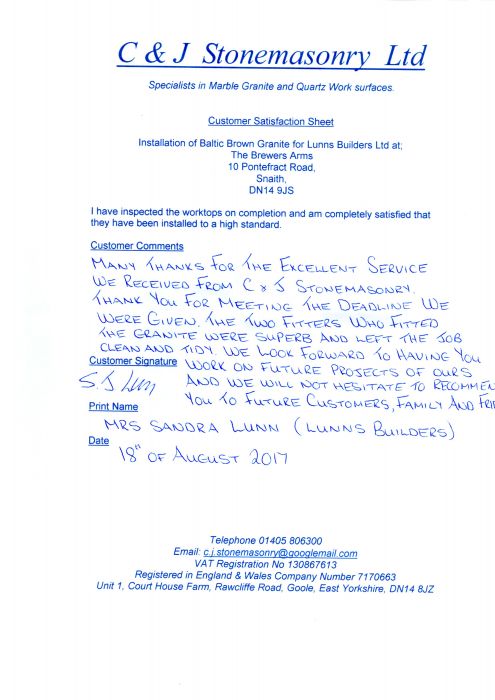 C & J Stonemasonry Ltd
Specialists in Marble Granite and Quartz Work surfaces.
Customer Satisfaction Sheet
Installation of Baltic Brown Granite for Lunns Builders Ltd at;
The Brewers Arms
10 Pontefract Road,
Snaith,
DN14 9JS
I have inspected the worktops on completion and am completely satisfied that
they have been installed to a high standard.
Customer Comments
MANY THANKS FOR THE EXCELLENT SERVICE
WE RECEIVED FROM C & J STONEMASONRY.
THANK YOU FOR MEETING THE DEADLINE WE
WERE GIVEN. THE TWO FITTERS WHO FITTED
THE GRANITE WERE SUPERB AND LEFT THE JOB
CLEAN AND TIDY. WE LOOK FORWARD TO HAVING YOU
Customer Signature WORK ON FUTURE PROJECTS OF OURS
S. J Lunn AND WE WILL NOT HESITATE TO RECOMMEN
YOU TO FUTURE CUSTOMERS, FAMILY AND FRI
Print Name
MRS SANDRA LUNN (LUNNS BUILDERS)
Date
18th OF AUGUST 2017
Telephone 01405 806300
Email: c.j.stonemasonry@googlemail.com
VAT Registration No 130867613
Registered in England & Wales Company Number 7170663
Unit 1, Court House Farm, Rawcliffe Road, Goole, East Yorkshire, DN14 8JZ